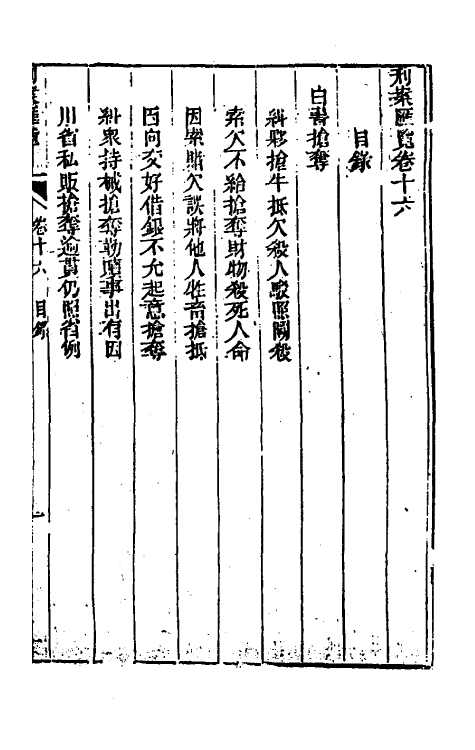 刑案匯覽卷十六
目錄
白晝搶奪
糾夥搶牛抵欠殺人駁照鬬殺
索欠不給搶奪財物殺死人命
因索賭欠誤將他人牲畜搶抵
因向交好借銀不允起意搶奪
糾衆持械搶奪勒贖事出有因
川省私販搶奪逾貫仍照省例
卷十六 目錄 一